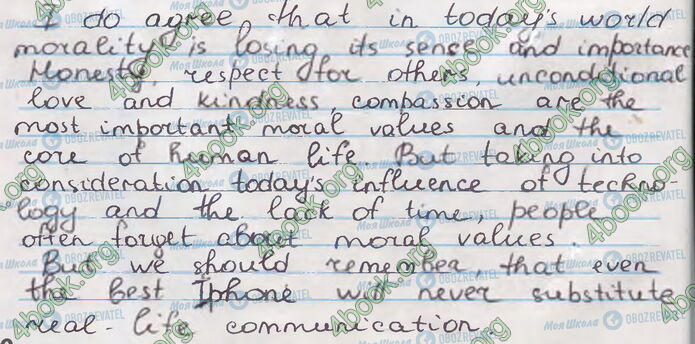 I do agree, that in today's world
morality is losing its sense and importance
Honesty, respect for others, unconditional
love and kindness, compassion are the
most important moral values and the
core of human life. But taking into
consideration today's influence of techno
logy and the lack of time, people
often forget about moral values.
But we should remember, that even
the best Iphone will never substitute
real-life communication